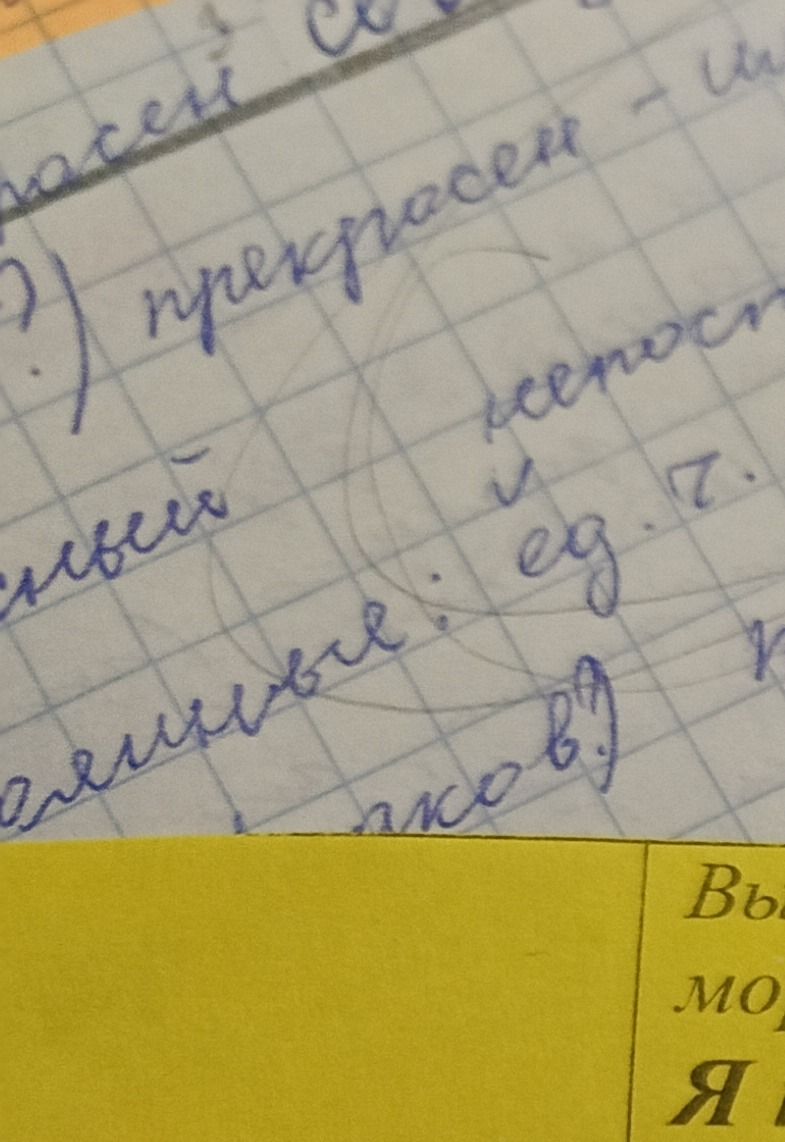 расен
?) прекрасен -
сный непост
оянные: ед. ч.
аков?)
Вы
мор
Я